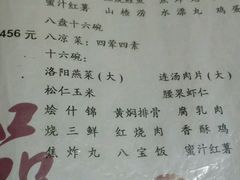 蜜汁红薯 山楂涝 水漂丸 鸡蛋
八盘十六碗
456元 八凉菜：四荤四素
十六碗：
洛阳燕菜（大） 连汤肉片（大）
松仁玉米 腰果虾仁
烩什锦 黄焖排骨 腐乳肉
烧三鲜 红烧肉 香酥鸡
焦炸丸 八宝饭 蜜汁红薯